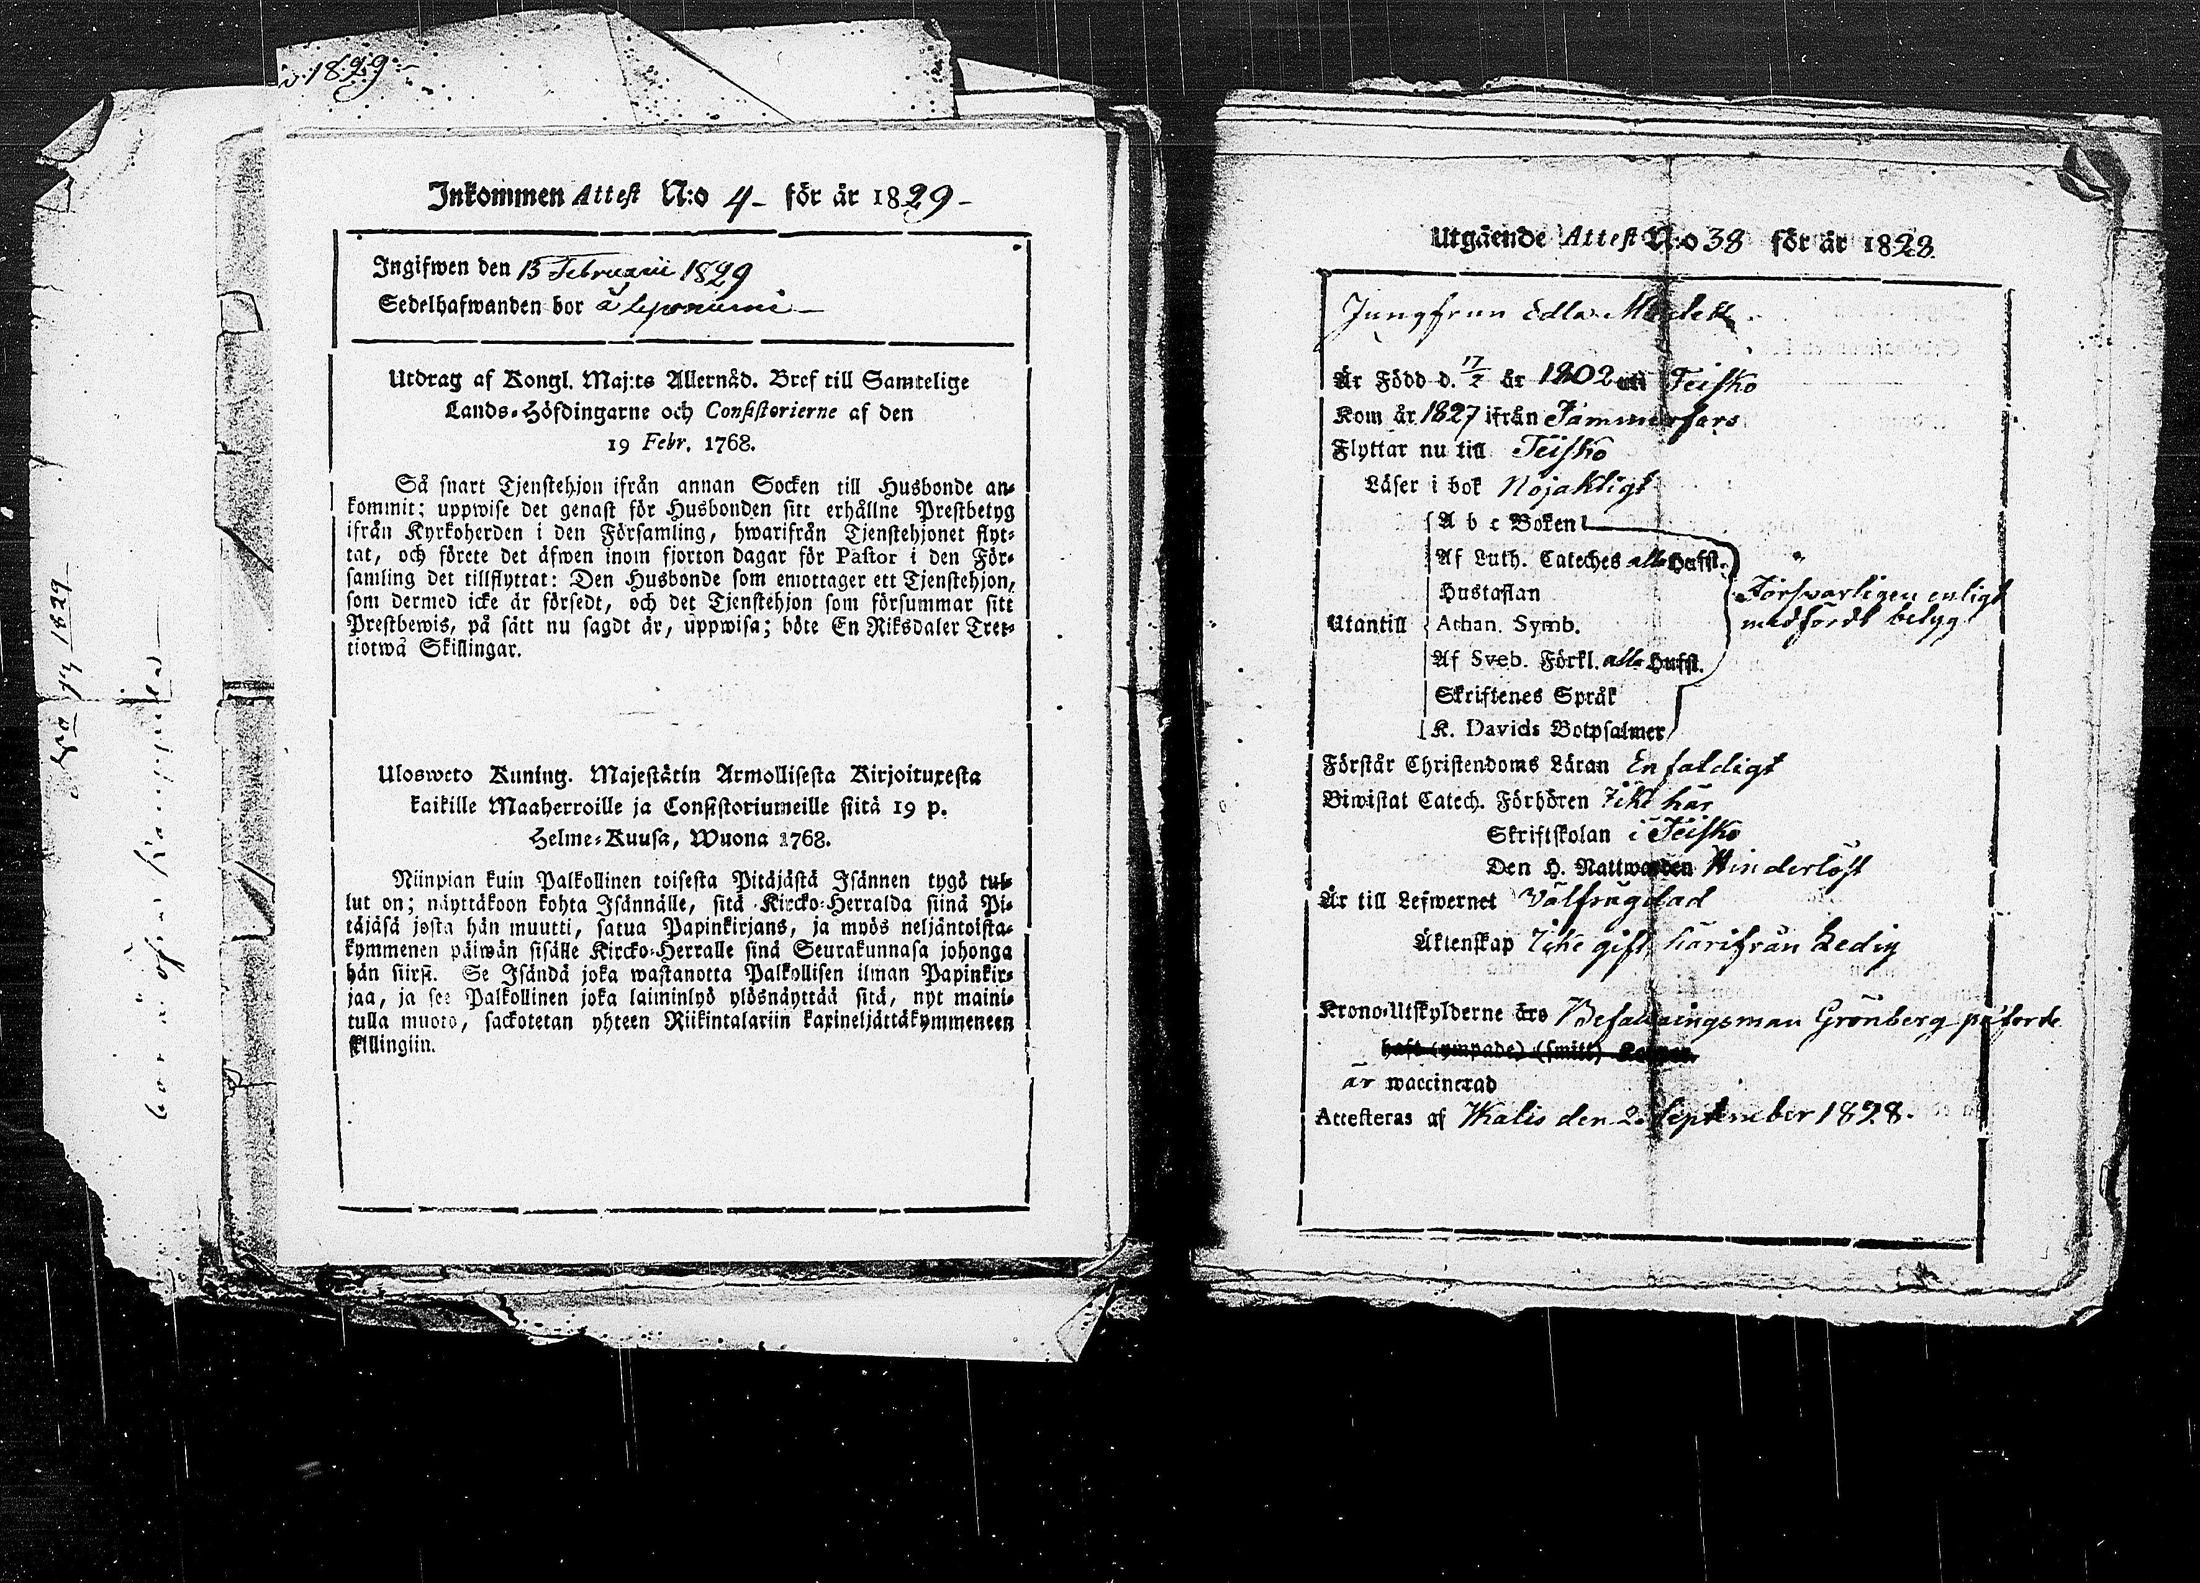 v. 1829.
Inkommen Attest N:o 4 - för år 1829 -
Ingifwen den 13 Februarii 1829
Sedelhafwanden bor å leponiemi -
Utdrag af Kongl. Maj:ts Allernåd. Bref till Samtelige
Lands-Höfdingarne och Consistorierne af den
19 Febr. 1768.
Så snart Tjenstehjon ifrån annan Socken till Husbonde an-
kommit; uppwise det genast för Husbonden sitt erhållne Prestbetyg
ifrån Kyrkoherden i den Församling, hwarifrån Tjenstehjonet flyt-
tat, och förete det äfwen inom fjorton dagar för Pastor i den För-
samling det tillflyttat: Den Husbonde som emottager ett Tjenstehjon,
som dermed icke är försedt, och det Tjenstehjon som försummar sitt
Prestbewis, på sätt nu sagdt är, uppwisa; böte En Riksdaler Tret-
tiotwå Skillingar.
Ulosweto Kuning. Majestätin Armollisesta Kirjoituxesta
kaikille Maaherroille ja Consistoriumeille siitä 19 p.
Helme-Kuusa, Wuona 1768.
Niinpian kuin Palkollinen toisesta Pitäjästä Isännen tygö tul-
lut on; näyttäkoon kohta Isännälle, sitä Kircko-Herralda siinä Pi-
täjäsä josta hän muutti, satua Papinkirjans, ja myös neljäntoista-
kymmenen päiwän sisälle Kircko-Herralle siinä Seurakunnasa johonga
hän siirsi. Se Isändä joka wastanotta Palkollisen ilman Papinkir-
jaa, ja see Palkollinen joka laiminlyö ylösnäyttää sitä, nyt maini-
tulla muoto, sackotetan yhteen Riikintalariin kaxineljättäkymmeneen
skillingiin.
Utgående Attest N:o 38 för år 1828.
Jungfrun Edla
Är Född d. 17/2 år 1802 uti Teisko
Kom år 1827 ifrån Tammerfors
Flyttar nu till Teisko
Läser i bok Nöjaktigt
A b c Boken
Af Luth. Cateches alla Hufst.
Hustaflan
Försvarligen enligt
medfördt betyg
Utantill Athan. Symb.
Af Sveb. Förkl. alla Hufst.
Skriftenes Språk
K. Davids Botpsalmer
Förstår Christendoms Läran Enfaldigt
Biwistat Catech. Förhören Icke här
Skriftskolan i Teisko
Den H. Nattwarden Hinderlöst
Är till Lefwernet Välfrägdad
Äktenskap Icke gift härifrån Ledig
Krono-Utskylderne äro Befallningsman Grönberg påförde
haft (ympade) (smitt) Koppor.
är waccinerad
Attesteras af Ikalis den 2. September 1828.